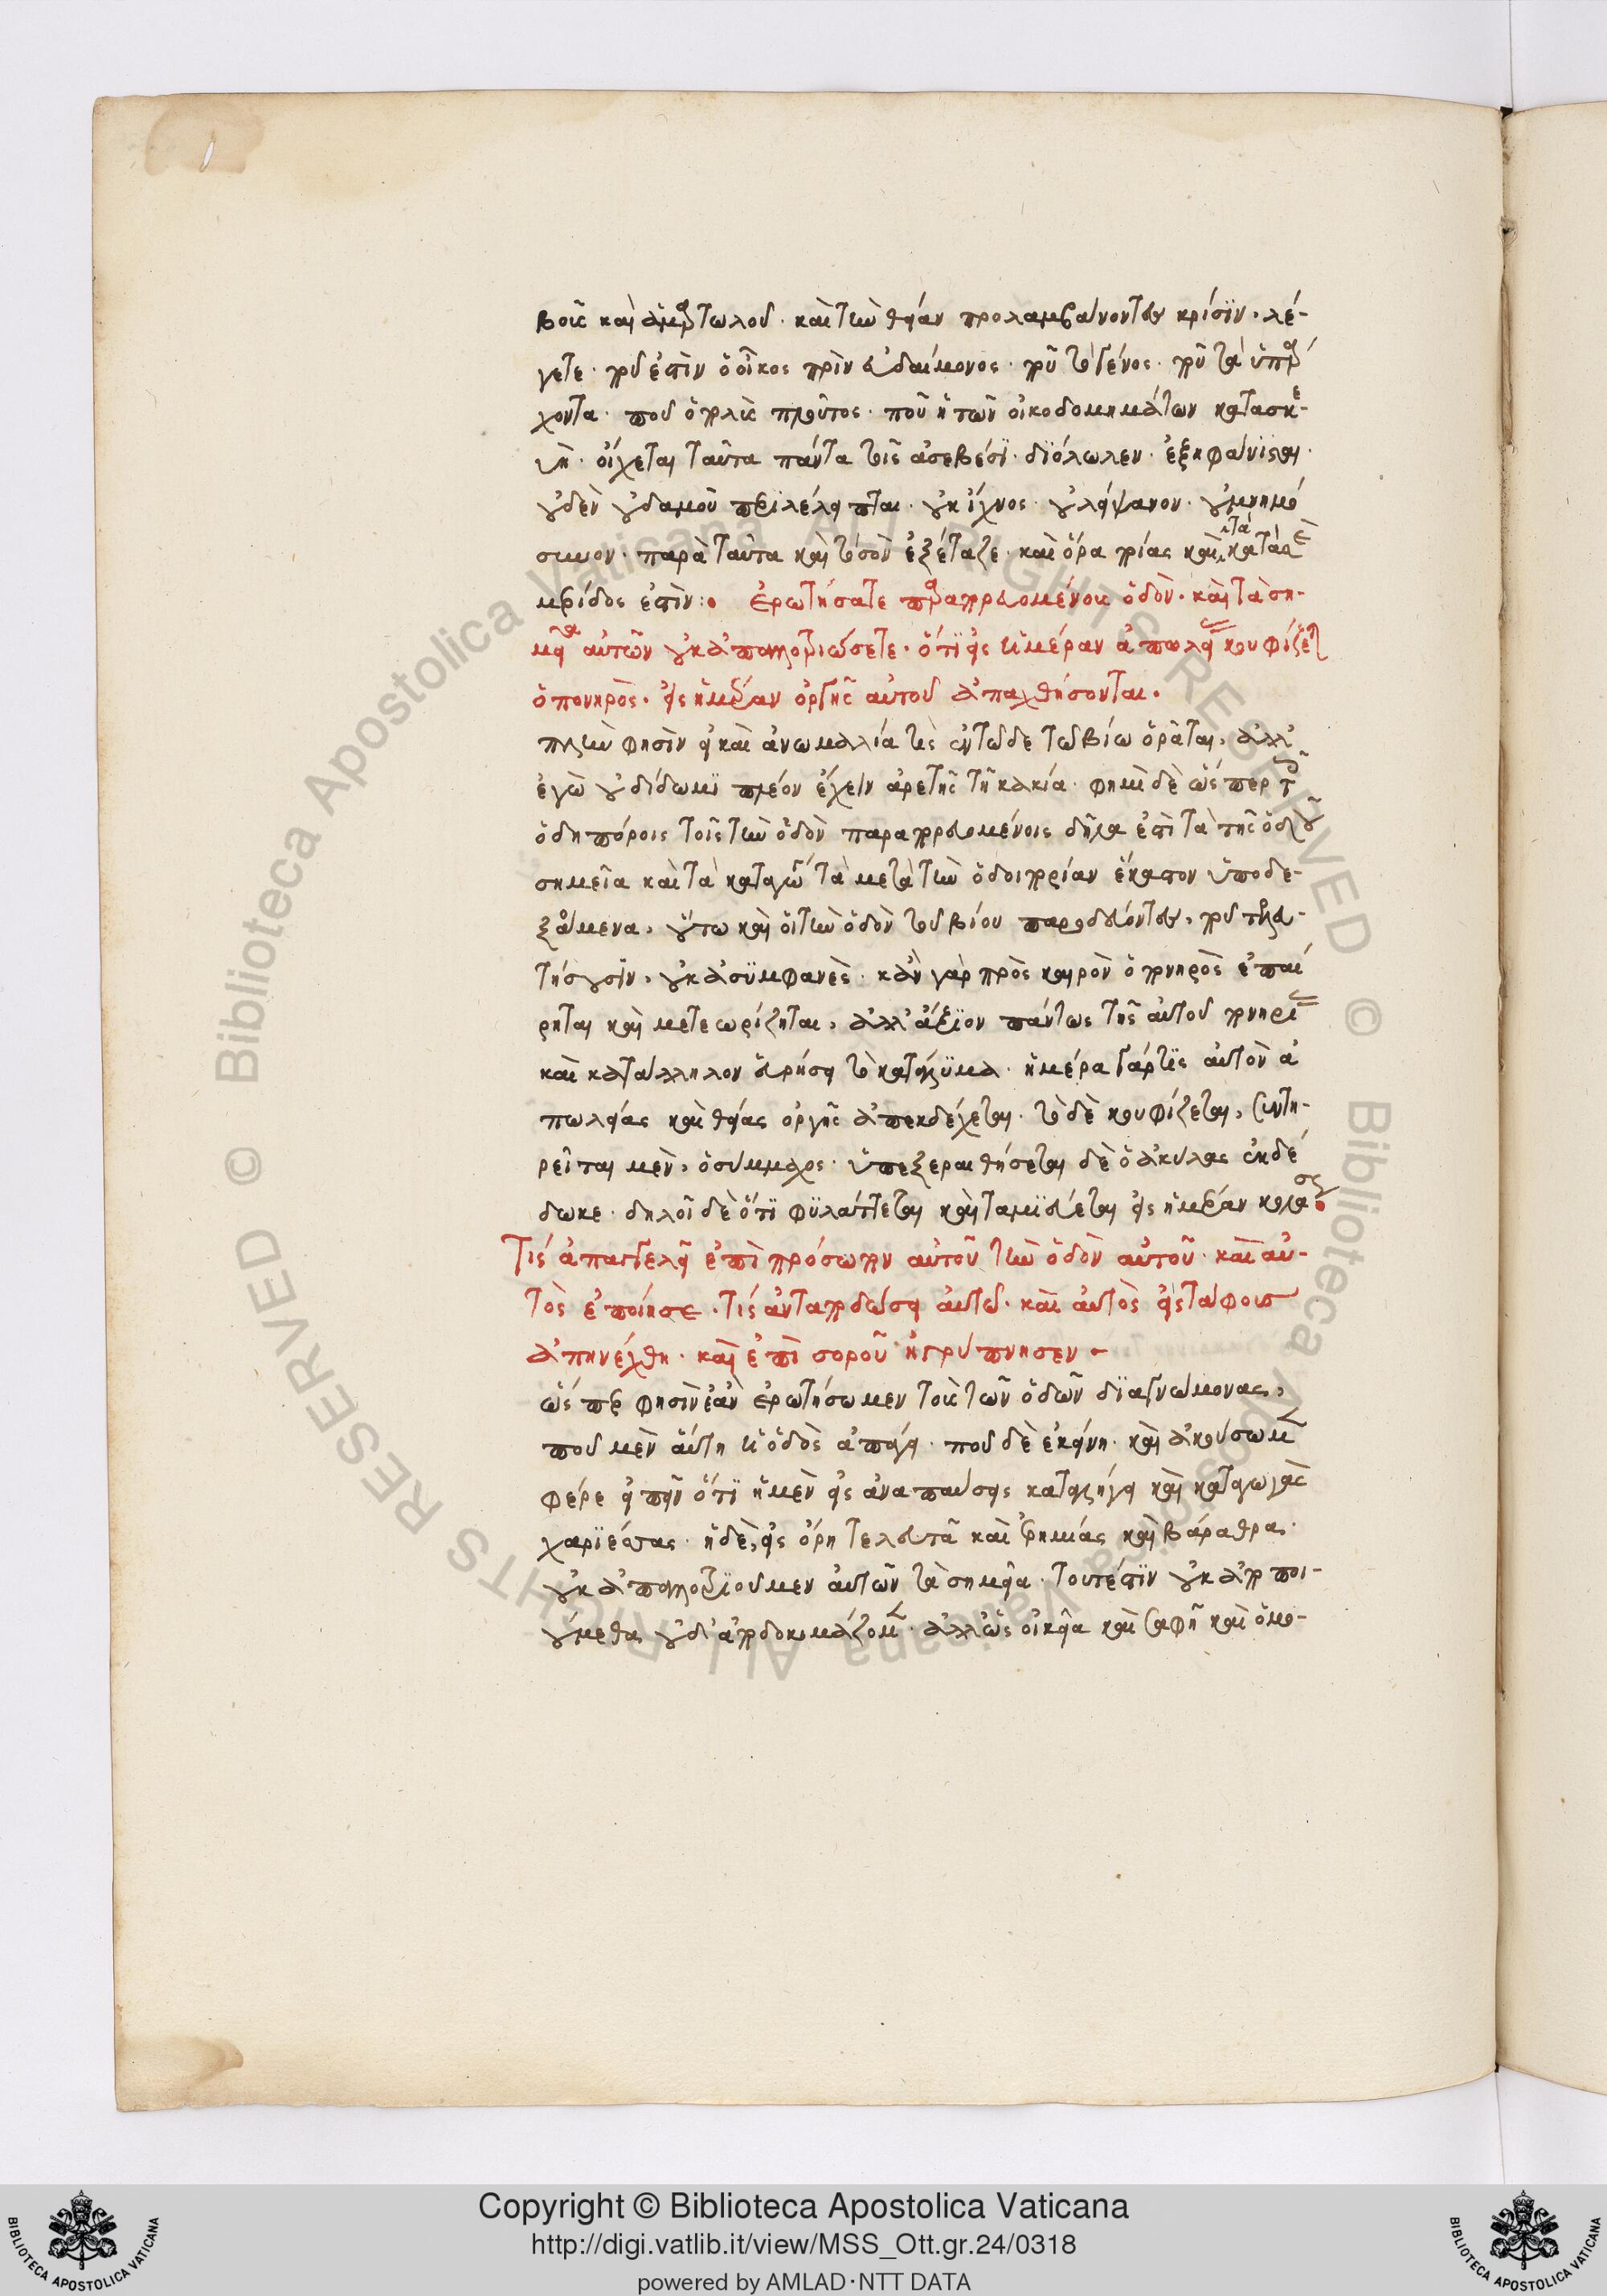 βοῦς καὶ ἁμαρτωλοὺς. καὶ τὴν θείαν προλαμβάνοντες κρίσϊν, λέ-
γετε. ποῦ ἐστὶν ὁ οἶκος πρὶν εὐδαίμονος. ποῦ τὸ γένος. ποῦ τὰ ὑπάρ
χοντα. ποῦ ὁ πολὺς πλοῦτος. ποῦ ἡ τῶν οἰκοδομημάτων κατασκε-
υή. οἴχεται ταῦτα πάντα τοῖς ἀσεβέσϊ. δϊόλωλεν. ἐξηφάνισται.
οὐδὲν οὐδαμοῦ περιλέλειπται. οὐκ ἴχνος. οὐ λείψανον. οὐ μνημό
συνον. παρὰ ταῦτα καὶ
μερίδος ἐστὶν: Ἐρωτήσατε παραπορευομένους ὁδὸν. καὶ τὰ ση-
μεῖα αὐτῶν οὐκ ἀπαλλοτριώσετε. ὅτϊ εἰς ἡμέραν ἀπωλείας κουφίζεται
ὁ πονηρὸς. εἰς ἡμέραν ὀργῆς αὐτοῦ ἀπαχθήσονται.
πλὴν φησὶν εἰ καὶ ἀνωμαλία τις ἐν τῶδε τῶ βίω ὁρᾶται, ἀλλ'
ἐγὼ οὐ δίδωμϊ πλέον ἔχειν ἀρετῆς τῆ κακία. φημὶ δὲ ὥσπερ τοῖς
ὁδηπόροις τοῖς τὴν ὁδὸν παραπορευομένοις δῆλα ἐστὶ τὰ τῆς ὁδοῦ
σημεῖα καὶ τὰ καταγώγια τὰ μετὰ τὴν ὁδοιπορίαν ἕκαστον ὑποδε-
ξάμενα, οὕτω καὶ οἱ τὴν ὁδὸν τοῦ βίου παροδεύοντες, ποῦ τελευ-
τήσουσϊν, οὐκ ἀσϋμφανὲς. κἂν γὰρ πρὸς καιρὸν ὁ πονηρὸς ἐπαί
ρηται καὶ μετεωρίζηται, ἀλλ' ἄξϊον πάντως τῆς αὐτοῦ πονηρίας
καὶ κατάλληλον εὑρήσει τὸ κατάλϋμα. ἡμέρα γάρ τϊς αὐτὸν ἀ
πωλείας καὶ θείας ὀργῆς ἀπεκδέχεται. τὸ δὲ κουφίζεται, συντη-
ρεῖται μὲν, ὁ σύμμαχος. ὑπεξεραιθήσεται δὲ ὁ ἀκύλας ἐκδέ
δωκε. δηλοῖ δὲ ὅτϊ φϋλάττεται καὶ ταμϊεύεται εἰς ἡμέραν κολάσεως
Τίς ἀπαγγελεῖ ἐπὶ πρόσωπον αὐτοῦ τὴν ὁδὸν αὐτοῦ. καὶ αὐ-
τὸς ἐποίησε. τίς ἀνταποδώσει αὐτῶ. καὶ αὐτὸς εἰς τάφους
ἀπηνέχθη. καὶ ἐπὶ σοροῦ ἠγρύπνησεν.
ὥσπερ φησὶν ἐὰν ἐρωτήσωμεν τοὺς τῶν ὁδῶν δϊαγνώμονας,
ποῦ μὲν αὕτη ἡ ὁδὸς ἀπάγει. ποῦ δὲ ἐκείνη. καὶ ἀκούσωμεν
φέρε εἰπεῖν ὅτϊ ἡ μὲν εἰς ἀναπαύσεις καταλήγει καὶ καταγωγὰς
χαρϊέσσας. ἡ δὲ, εἰς ὄρη τελευτᾶ καὶ ἐρημίας καὶ βάραθρα.
οὐκ ἀπαλλοτρϊοῦμεν αὐτῶν τὰ σημεῖα. τουτέστϊν οὐκ ἀποποι-
ούμεθα οὐδ' ἀποδοκιμάζομεν. ἀλλ' ὡς οἰκεῖα καὶ σαφῆ καὶ ὁμο-
Copyright © Biblioteca Apostolica Vaticana
http://digi.vatlib.it/view/MSS_Ott.gr.24/0318
powered by AMLAD·NTT DATA